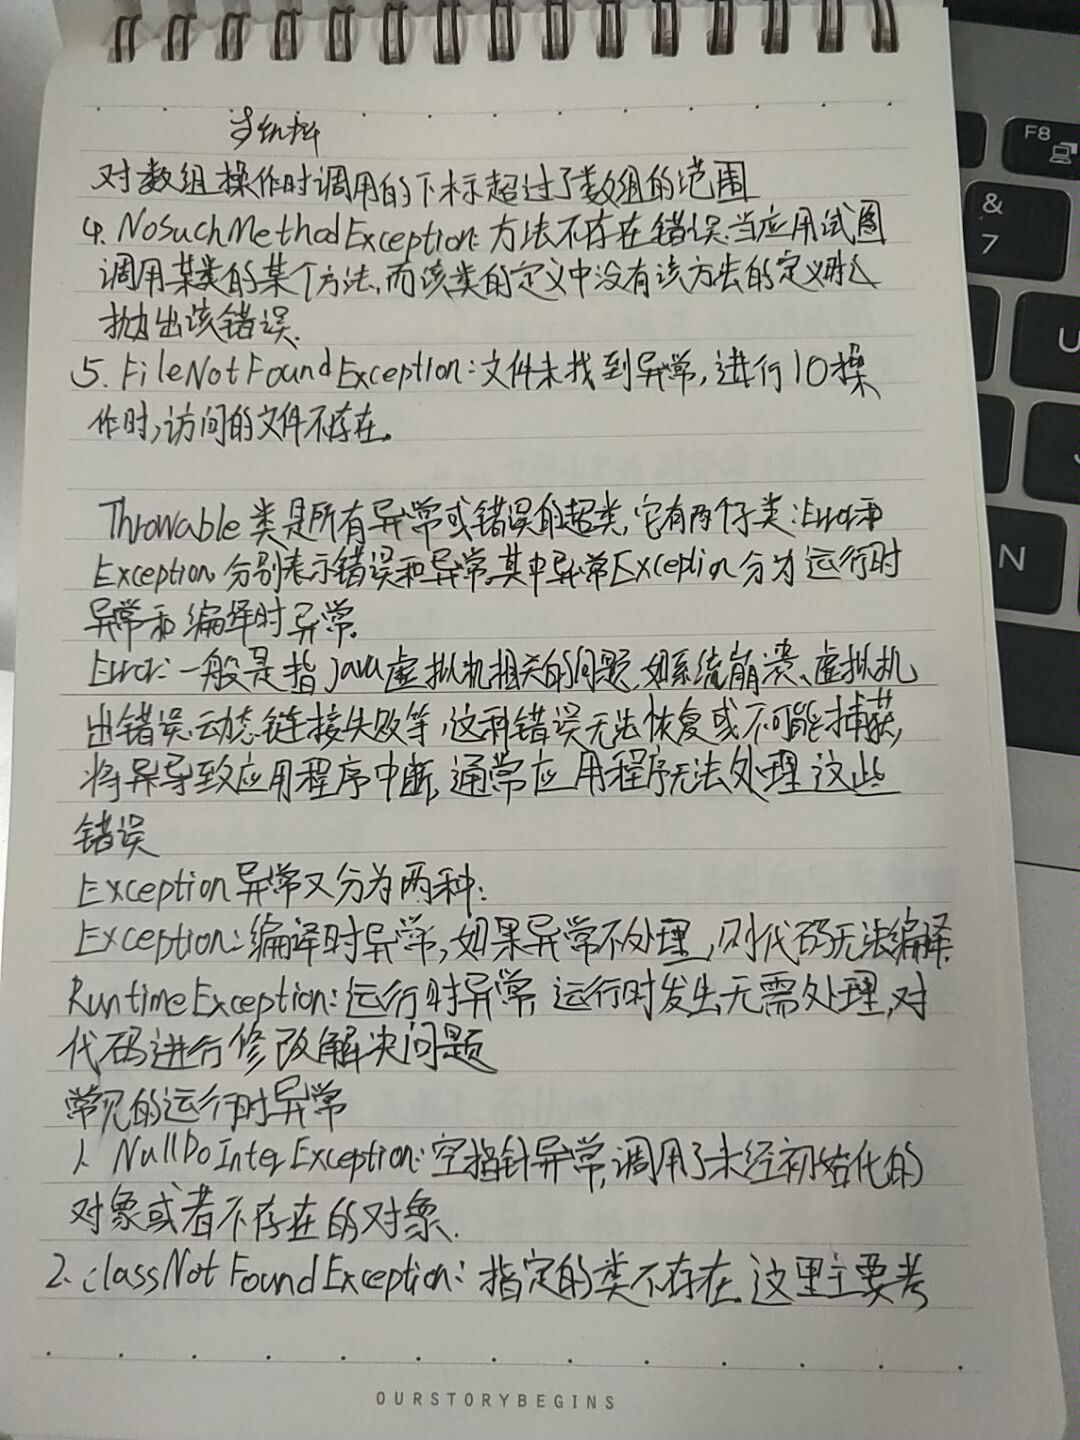 对数组操作时调用的下标超过了数组的范围
4. NoSuchMethodException: 方法不存在错误.当应用试图
调用某类的某个方法,而该类的定义中没有该方法的定义时
抛出该错误.
5. FileNotFoundException:文件未找到异常,进行IO操
作时,访问的文件不存在。
Throwable类是所有异常或错误的超类,它有两个子类:Error和
Exception,分别表示错误和异常.其中异常Exception分为运行时
异常和编译时异常.
Error:一般是指java虚拟机相关的问题,如系统崩溃、虚拟机
出错误.动态链接失败等,这种错误无法恢复或不可能捕获,
将异导致应用程序中断,通常应用程序无法处理这些
错误
Exception异常又分为两种:
Exception:编译时异常,如果异常不处理,则代码无法编译.
RuntimeException:运行时异常,运行时发生,无需处理,对
代码进行修改解决问题
常见的运行时异常
1. NullPoInterException:空指针异常,调用了未经初始化的
对象或者不存在的对象.
2. classNotFoundException:指定的类不存在.这里主要考
OURSTORYBEGINS
F8
&
7
U
J
N